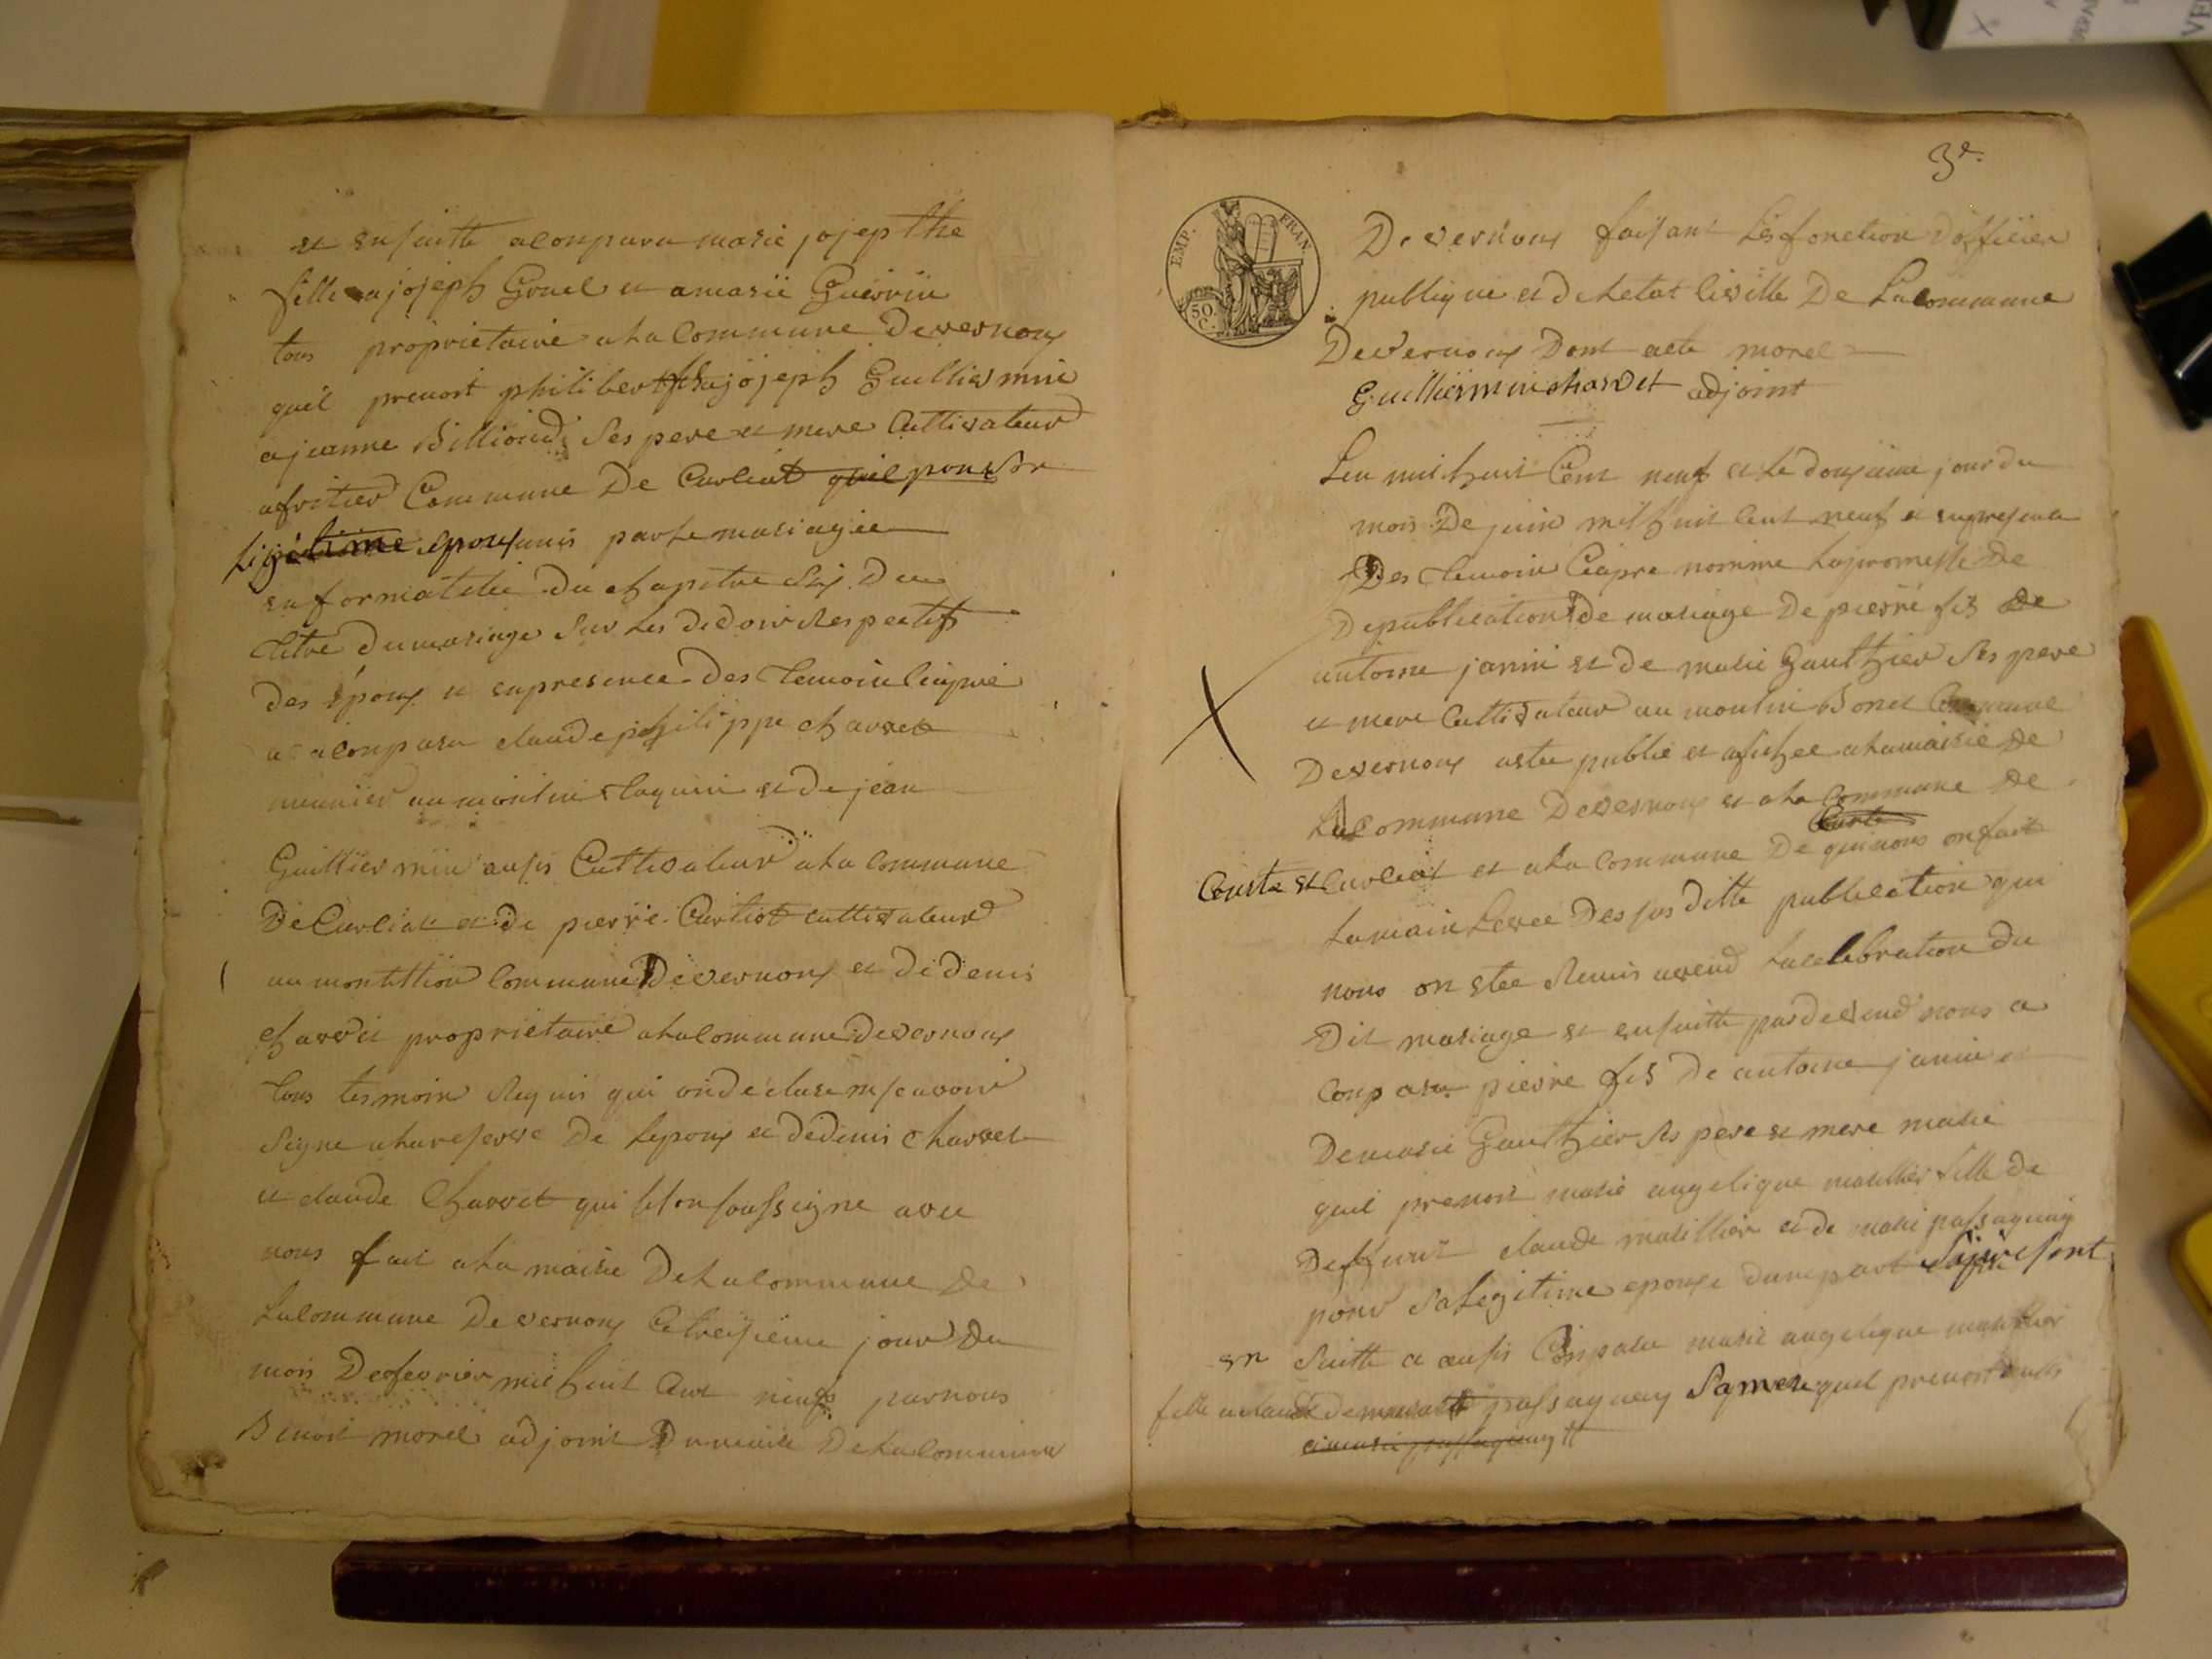 et ensuitte a conparu marie jojepthe
fille a jojeph Gouel et a marie Guerrin
tous proprietaire a la Commune de vernoux
quil prenoit philibert fils a jojeph Guilliermin
a jeanne Billioud ses pere et mere Cultivateur
a fretier Commune De Curciat quil pour son
legitime epoux unis par le mariagee
en formatité du chapitre six Du
titre du mariage sur les dedoir Respectifs
des époux et en presence des temoin ciapré
a conparu claude philippe charvet
meunier au moulin taquin et de jean
Guilliermin ausis Cultivateur a la commune
De Curciat et de pierre Curtiot cultivateur
au montillion Commune De vernoux et de denis
charvet proprietaire a la commune de vernoux
tous temoin Requis qui on declare ne scavoir
signe a la reserve De lepoux et de denis charvet
et claude Charvet qui se son soussigne avec
nous fait a la mairie De la Commune de
la commune De vernoux Ce treisieme jour du
mois De fevrier mil huit Cent neuf par nous
Benoit morel adjoint Du maire De la commune
3e.
EMP. FRAN.
50 C.
De vernoux faisant les fonction dofficier
publique et de letat civille De La commune
De vernoux Dont acte morel
Guilliermin charvet adjoint
Len mil huit Cent neuf et le douzieme jour du
mois De juin mil huit cent neuf et en presence
Des temoin Ciapre nomme la promesse de
De publication de mariage De pierre fils de
antoine janin et de marie Gauthier ses pere
et mere Cultivateur au moulin Bonet Commune
De vernoux a ete publie et afichee a la mairie de
La Commune De vernoux et a la Commune de
Curte
Courte et Curciat et a la Commune De qui nous on fait
la main levee Des sus ditte publication qui
nous on etee Remis avend la celebration du
Dit mariage et ensuitte par devend nous a
Conparu pierre fils De antoine janin et
De marie Gauthier ses pere et mere marie
quil prenoit marie angelique maillier fille de
Deffunt claude maillier et de marie passaquay
pour sa legitime epouse dune part sont
en suitte a ausis Conparu marie angelique maillier
fille a claude de passaquay sa mere quil prenoit
et marie passaquay